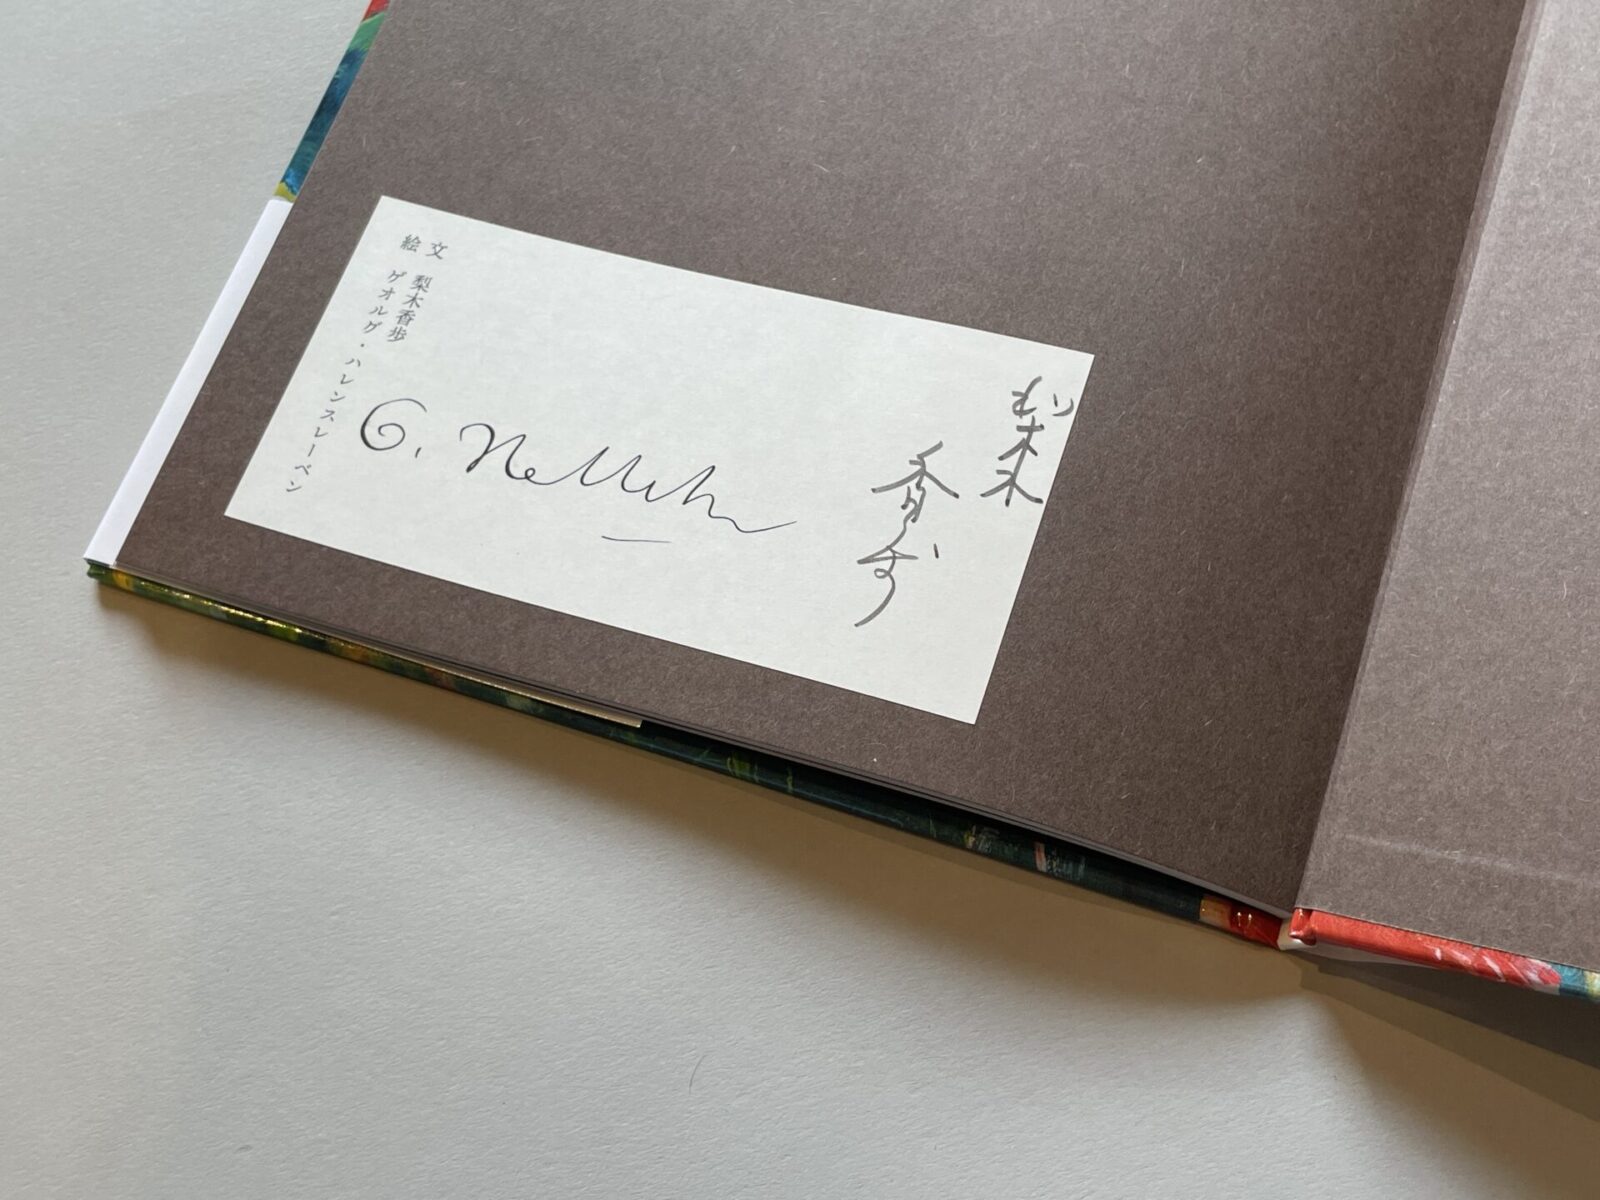 文 梨木香歩
絵 ゲオルグ・ハレンスレーベン
梨木
香歩
G.